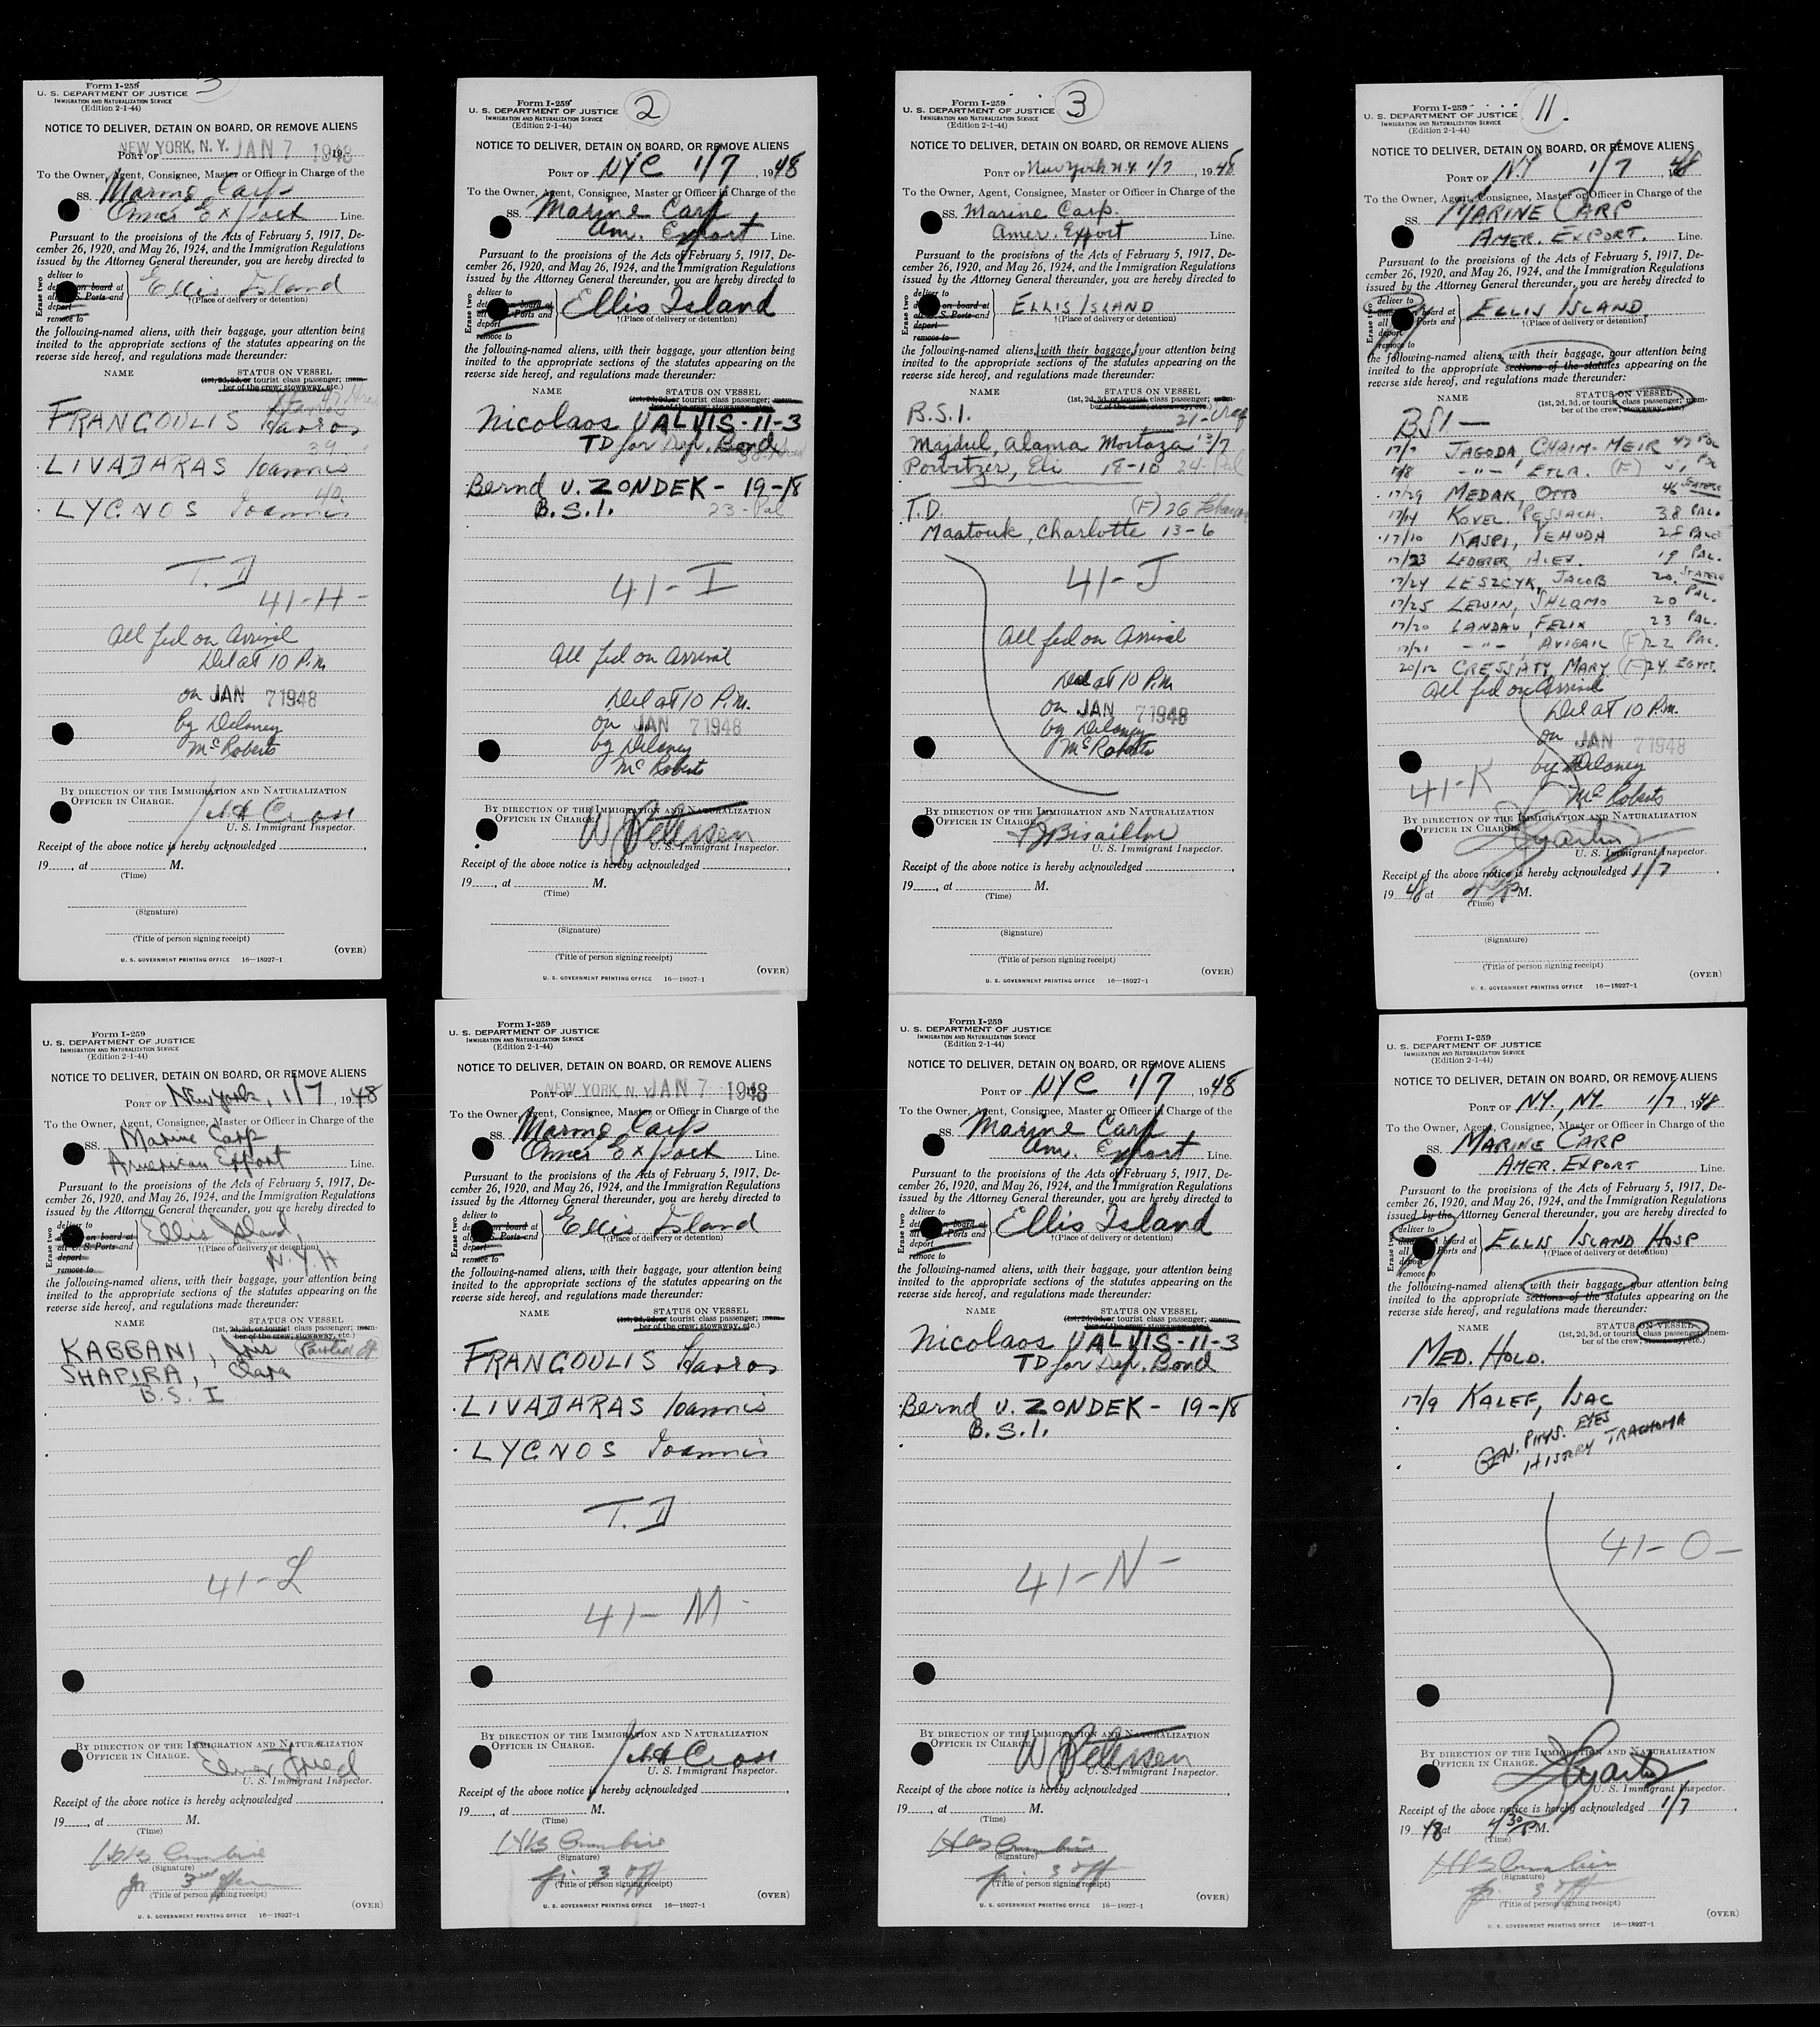 3
Form I-259
U. S. DEPARTMENT OF JUSTICE
IMMIGRATION AND NATURALIZATION SERVICE
(Edition 2-1-44)
NOTICE TO DELIVER, DETAIN ON BOARD, OR REMOVE ALIENS
PORT OF NEW YORK, N. Y. JAN 7 1948
To the Owner, Agent, Consignee, Master or Officer in Charge of the
SS. Marine Carp
Amer Export Line.
Pursuant to the provisions of the Acts of February 5, 1917, De-
cember 26, 1920, and May 26, 1924, and the Immigration Regulations
issued by the Attorney General thereunder, you are hereby directed to
Erase two
deliver to
on board at
all U. S. Ports and
deport
remove to
Ellis Island
†(Place of delivery or detention)
the following-named aliens, with their baggage, your attention being
invited to the appropriate sections of the statutes appearing on the
reverse side hereof, and regulations made thereunder:
NAME STATUS ON VESSEL
(1st, 2d, 3d, or tourist class passenger; mem-
ber of the crew; stowaway, etc.)
FRANGOULIS Stavros
39
LIVADARAS Ioannis
42
LYGNOS Ioannis
T. D
41-H-
All fed on Arrival
Del at 10 P.M.
on JAN 7 1948
by Delaney
McRoberts
BY DIRECTION OF THE IMMIGRATION AND NATURALIZATION
OFFICER IN CHARGE.
U. S. Immigrant Inspector.
Receipt of the above notice is hereby acknowledged
19, at M.
(Time)
(Signature)
(Title of person signing receipt)
(OVER)
U. S. GOVERNMENT PRINTING OFFICE 16—18927-1
2
Form I-259
U. S. DEPARTMENT OF JUSTICE
IMMIGRATION AND NATURALIZATION SERVICE
(Edition 2-1-44)
NOTICE TO DELIVER, DETAIN ON BOARD, OR REMOVE ALIENS
PORT OF NYC 1/7, 1948
To the Owner, Agent, Consignee, Master or Officer in Charge of the
SS. Marine Carp
Am. Export Line.
Pursuant to the provisions of the Acts of February 5, 1917, De-
cember 26, 1920, and May 26, 1924, and the Immigration Regulations
issued by the Attorney General thereunder, you are hereby directed to
Erase two
deliver to
on board at
all U. S. Ports and
deport
remove to
Ellis Island
†(Place of delivery or detention)
the following-named aliens, with their baggage, your attention being
invited to the appropriate sections of the statutes appearing on the
reverse side hereof, and regulations made thereunder:
NAME STATUS ON VESSEL
(1st, 2d, 3d, or tourist class passenger; mem-
ber of the crew; stowaway, etc.)
Nicolaos VALVIS-11-3
TD for Dep. Bond
Bernd U. ZONDEK - 19-18
B.S.I. 23-Pal
41-I
All fed on Arrival
Del at 10 P.M.
on JAN 7 1948
by Delaney
McRoberts
BY DIRECTION OF THE IMMIGRATION AND NATURALIZATION
OFFICER IN CHARGE.
W Petersen
U. S. Immigrant Inspector.
Receipt of the above notice is hereby acknowledged
19, at M.
(Time)
(Signature)
(Title of person signing receipt)
(OVER)
U. S. GOVERNMENT PRINTING OFFICE 16—18927-1
3
Form I-259
U. S. DEPARTMENT OF JUSTICE
IMMIGRATION AND NATURALIZATION SERVICE
(Edition 2-1-44)
NOTICE TO DELIVER, DETAIN ON BOARD, OR REMOVE ALIENS
PORT OF New York N.Y. 1/7, 1948
To the Owner, Agent, Consignee, Master or Officer in Charge of the
SS. Marine Carp.
Amer. Export Line.
Pursuant to the provisions of the Acts of February 5, 1917, De-
cember 26, 1920, and May 26, 1924, and the Immigration Regulations
issued by the Attorney General thereunder, you are hereby directed to
Erase two
deliver to
on board at
all U. S. Ports and
deport
remove to
ELLIS ISLAND
†(Place of delivery or detention)
the following-named aliens, with their baggage, your attention being
invited to the appropriate sections of the statutes appearing on the
reverse side hereof, and regulations made thereunder:
NAME STATUS ON VESSEL
(1st, 2d, 3d, or tourist class passenger; mem-
ber of the crew; stowaway, etc.)
B.S.I. 21-Iraq
Majdul, Alama Mortaza 13/7
Porvitzer, Eli 18-10 24-Pal
T.D. (F) 26 Lebanon
Maatouk, Charlotte 13-6
41-J
All fed on Arrival
Del at 10 P.M.
on JAN 7 1948
by Delaney
McRoberts
BY DIRECTION OF THE IMMIGRATION AND NATURALIZATION
OFFICER IN CHARGE.
Bisaillon
U. S. Immigrant Inspector.
Receipt of the above notice is hereby acknowledged
19, at M.
(Time)
(Signature)
(Title of person signing receipt)
(OVER)
U. S. GOVERNMENT PRINTING OFFICE 16—18927-1
11.
Form I-259
U. S. DEPARTMENT OF JUSTICE
IMMIGRATION AND NATURALIZATION SERVICE
(Edition 2-1-44)
NOTICE TO DELIVER, DETAIN ON BOARD, OR REMOVE ALIENS
PORT OF NY 1/7 48
To the Owner, Agent, Consignee, Master or Officer in Charge of the
SS. MARINE CARP
AMER. EXPORT. Line.
Pursuant to the provisions of the Acts of February 5, 1917, De-
cember 26, 1920, and May 26, 1924, and the Immigration Regulations
issued by the Attorney General thereunder, you are hereby directed to
deliver to
board at
all Ports and
deport
remove to
ELLIS ISLAND.
†(Place of delivery or detention)
the following-named aliens, with their baggage, your attention being
invited to the appropriate sections of the statutes appearing on the
reverse side hereof, and regulations made thereunder:
NAME STATUS ON VESSEL
(1st, 2d, 3d, or tourist class passenger; mem-
ber of the crew; stowaway, etc.)
BSI —
17/7 JAGODA CHAIM-MEIR 47 POL
17/8 -"- ETLA. (F)
17/29 MEDAK, OTTO 46 STATELESS
17/14 KOVEL. PESSACH. 38 PAL.
17/10 KASPI, YEHUDA 25 PAL
17/23 LEDERER, ALEX. 19 PAL.
17/24 LESZCYK, JACOB 20. STATELESS
17/25 LEWIN, SHLOMO 20 PAL.
17/20 LANDAU, FELIX 23 PAL.
17/21 -"-, AVIGAIL (F) 22 PAL.
20/12 CRESSATY, MARY. (F) 24. EGYPT.
All fed on Arrival
Del at 10 P.M.
on JAN 7 1948
by Delaney
McRoberts
41-K
BY DIRECTION OF THE IMMIGRATION AND NATURALIZATION
OFFICER IN CHARGE.
U. S. Immigrant Inspector.
Receipt of the above notice is hereby acknowledged 1/7
1948 at 4 30 P M.
(Time)
(Signature)
(Title of person signing receipt)
(OVER)
U. S. GOVERNMENT PRINTING OFFICE 16—18927-1
Form I-259
U. S. DEPARTMENT OF JUSTICE
IMMIGRATION AND NATURALIZATION SERVICE
(Edition 2-1-44)
NOTICE TO DELIVER, DETAIN ON BOARD, OR REMOVE ALIENS
PORT OF New York, 1/7, 1948
To the Owner, Agent, Consignee, Master or Officer in Charge of the
SS. Marine Carp
American Export Line.
Pursuant to the provisions of the Acts of February 5, 1917, De-
cember 26, 1920, and May 26, 1924, and the Immigration Regulations
issued by the Attorney General thereunder, you are hereby directed to
Erase two
deliver to
on board at
all U. S. Ports and
deport
remove to
Ellis Island,
†(Place of delivery or detention)
N.Y.H
the following-named aliens, with their baggage, your attention being
invited to the appropriate sections of the statutes appearing on the
reverse side hereof, and regulations made thereunder:
NAME STATUS ON VESSEL
(1st, 2d, 3d, or tourist class passenger; mem-
ber of the crew; stowaway, etc.)
KABBANI,
SHAPIRA, Clara
B.S.I
41-L
BY DIRECTION OF THE IMMIGRATION AND NATURALIZATION
OFFICER IN CHARGE.
Elmer Fried
U. S. Immigrant Inspector.
Receipt of the above notice is hereby acknowledged
19, at M.
(Time)
(Signature)
jr 3rd
(Title of person signing receipt)
(OVER)
U. S. GOVERNMENT PRINTING OFFICE 16—18927-1
Form I-259
U. S. DEPARTMENT OF JUSTICE
IMMIGRATION AND NATURALIZATION SERVICE
(Edition 2-1-44)
NOTICE TO DELIVER, DETAIN ON BOARD, OR REMOVE ALIENS
PORT OF NEW YORK, N. Y. JAN 7 1948
To the Owner, Agent, Consignee, Master or Officer in Charge of the
SS. Marine Carp
Amer Export Line.
Pursuant to the provisions of the Acts of February 5, 1917, De-
cember 26, 1920, and May 26, 1924, and the Immigration Regulations
issued by the Attorney General thereunder, you are hereby directed to
Erase two
deliver to
on board at
all U. S. Ports and
deport
remove to
Ellis Island
†(Place of delivery or detention)
the following-named aliens, with their baggage, your attention being
invited to the appropriate sections of the statutes appearing on the
reverse side hereof, and regulations made thereunder:
NAME STATUS ON VESSEL
(1st, 2d, 3d, or tourist class passenger; mem-
ber of the crew; stowaway, etc.)
FRANGOULIS Stavros
LIVADARAS Ioannis
LYGNOS Ioannis
T. D
41- M
BY DIRECTION OF THE IMMIGRATION AND NATURALIZATION
OFFICER IN CHARGE.
U. S. Immigrant Inspector.
Receipt of the above notice is hereby acknowledged
19, at M.
(Time)
(Signature)
jr. 3 off
(Title of person signing receipt)
(OVER)
U. S. GOVERNMENT PRINTING OFFICE 16—18927-1
Form I-259
U. S. DEPARTMENT OF JUSTICE
IMMIGRATION AND NATURALIZATION SERVICE
(Edition 2-1-44)
NOTICE TO DELIVER, DETAIN ON BOARD, OR REMOVE ALIENS
PORT OF NYC 1/7, 1948
To the Owner, Agent, Consignee, Master or Officer in Charge of the
SS. Marine Carp
Am. Export Line.
Pursuant to the provisions of the Acts of February 5, 1917, De-
cember 26, 1920, and May 26, 1924, and the Immigration Regulations
issued by the Attorney General thereunder, you are hereby directed to
Erase two
deliver to
on board at
all U. S. Ports and
deport
remove to
Ellis Island
†(Place of delivery or detention)
the following-named aliens, with their baggage, your attention being
invited to the appropriate sections of the statutes appearing on the
reverse side hereof, and regulations made thereunder:
NAME STATUS ON VESSEL
(1st, 2d, 3d, or tourist class passenger; mem-
ber of the crew; stowaway, etc.)
Nicolaos VALVIS-11-3
TD for Dep. Bond
Bernd U. ZONDEK - 19-18
B.S.I.
41-N-
BY DIRECTION OF THE IMMIGRATION AND NATURALIZATION
OFFICER IN CHARGE.
W Petersen
U. S. Immigrant Inspector.
Receipt of the above notice is hereby acknowledged
19, at M.
(Time)
(Signature)
jr. 3 off
(Title of person signing receipt)
(OVER)
U. S. GOVERNMENT PRINTING OFFICE 16—18927-1
Form I-259
U. S. DEPARTMENT OF JUSTICE
IMMIGRATION AND NATURALIZATION SERVICE
(Edition 2-1-44)
NOTICE TO DELIVER, DETAIN ON BOARD, OR REMOVE ALIENS
PORT OF NY., NY. 1/7, 1948
To the Owner, Agent, Consignee, Master or Officer in Charge of the
SS. MARINE CARP
AMER. EXPORT Line.
Pursuant to the provisions of the Acts of February 5, 1917, De-
cember 26, 1920, and May 26, 1924, and the Immigration Regulations
issued by the Attorney General thereunder, you are hereby directed to
Erase two
deliver to
board at
all Ports and
deport
remove to
ELLIS ISLAND HOSP
†(Place of delivery or detention)
the following-named aliens, with their baggage, your attention being
invited to the appropriate sections of the statutes appearing on the
reverse side hereof, and regulations made thereunder:
NAME STATUS ON VESSEL
(1st, 2d, 3d, or tourist class passenger; mem-
ber of the crew; stowaway, etc.)
MED. HOLD.
17/9 KALEF, ISAC
GEN. PHYS. EYES
HISTORY TRACHOMA
41-O-
BY DIRECTION OF THE IMMIGRATION AND NATURALIZATION
OFFICER IN CHARGE.
U. S. Immigrant Inspector.
Receipt of the above notice is hereby acknowledged 1/7
1948 at 4 30 P M.
(Time)
(Signature)
jr. 3 off
(Title of person signing receipt)
(OVER)
U. S. GOVERNMENT PRINTING OFFICE 16—18927-1